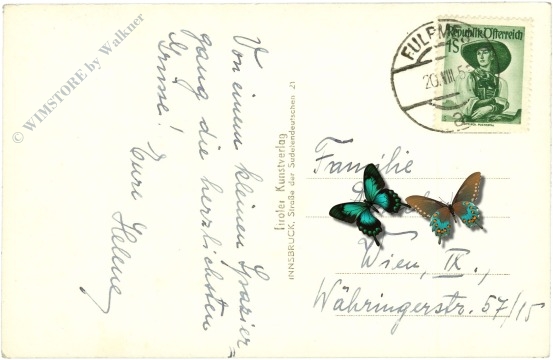 © WIMSTORE by Walkner
Von einem kleinen Spazier
gang die herzlichsten
Grüsse!
Eure Helene
Tiroler Kunstverlag
INNSBRUCK, Straße der Sudetendeutschen 21
FULPMES
20.VIII.5
a
Republik Österreich
1S
Familie
Wien, IX.,
Währingerstr. 57/15